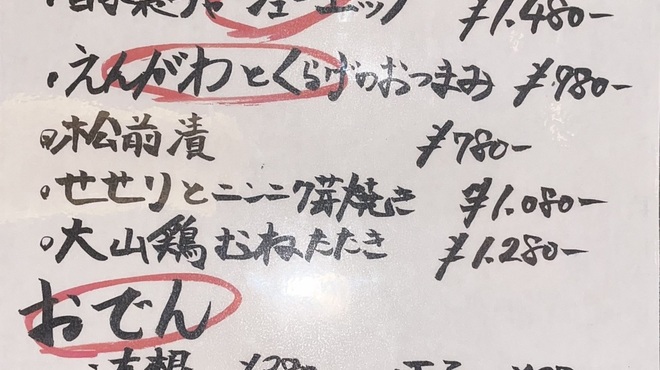 ¥1.480-
・えんがわとくらげのおつまみ ¥980-
○松前漬 ¥780-
○せせりとニンニク芽焼き ¥1.080-
○大山鶏むねたたき ¥1.280-
おでん